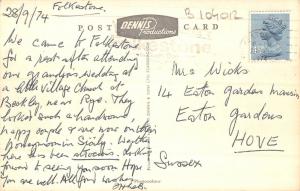 28/9/74 Folkestone.
B 1040R
DENNIS
Productions
POST CARD
We came to Folkestone
for a rest after attending
our grandsons wedding at
a little Village Church at
Beckley, near Rye. They
looked such a handsome,
happy couple & are now on their
honeymoon in Sicily. Weather
here has been atrocious. Looking
forward to seeing you soon. Hope
you are well. All good wishes
Mrs Wicks
14 Eaton Garden Mansions
Eaton Gardens
HOVE
Sussex